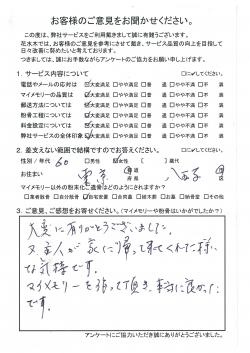 お客様のご意見をお聞かせください。
この度は、弊社サービスをご利用戴きまして誠に有難うございます。
花水木では、お客様のご意見を参考にさせて戴き、サービス品質の向上を目指して
日々改善に努めたいと考えております。
つきましては、誠にお手数ながらアンケートのご協力をお願い申し上げます。
1. サービス内容について □に✓してください。
電話やメールの応対は ☑大変満足 □やや満足 □普 通 □やや不満 □不 満
マイメモリーの品質は ☑大変満足 □やや満足 □普 通 □やや不満 □不 満
郵送方法について ☑大変満足 □やや満足 □普 通 □やや不満 □不 満
粉骨工程について ☑大変満足 □やや満足 □普 通 □やや不満 □不 満
料金設定について ☑大変満足 □やや満足 □普 通 □やや不満 □不 満
弊社サービスの全体印象 ☑大変満足 □やや満足 □普 通 □やや不満 □不 満
2. 差支えない範囲で結構ですのでお答えください。
性別/年代 60 □男性 ☑女性 ( )歳代
お住まい 東京 都道府県 八王子 市区
マイメモリー以外の粉末化ご遺骨はどのようにされますか？
3. ご意見、ご感想をお寄せください。(マイメモリーや粉骨はいかがでしたか？)
大変に有りがとうございました。
又主人が家に帰って来てくれた様
な気持です。
マイメモリーを持って頂き、本当に良かった
です。
アンケートにご協力いただき誠にありがとうございました。